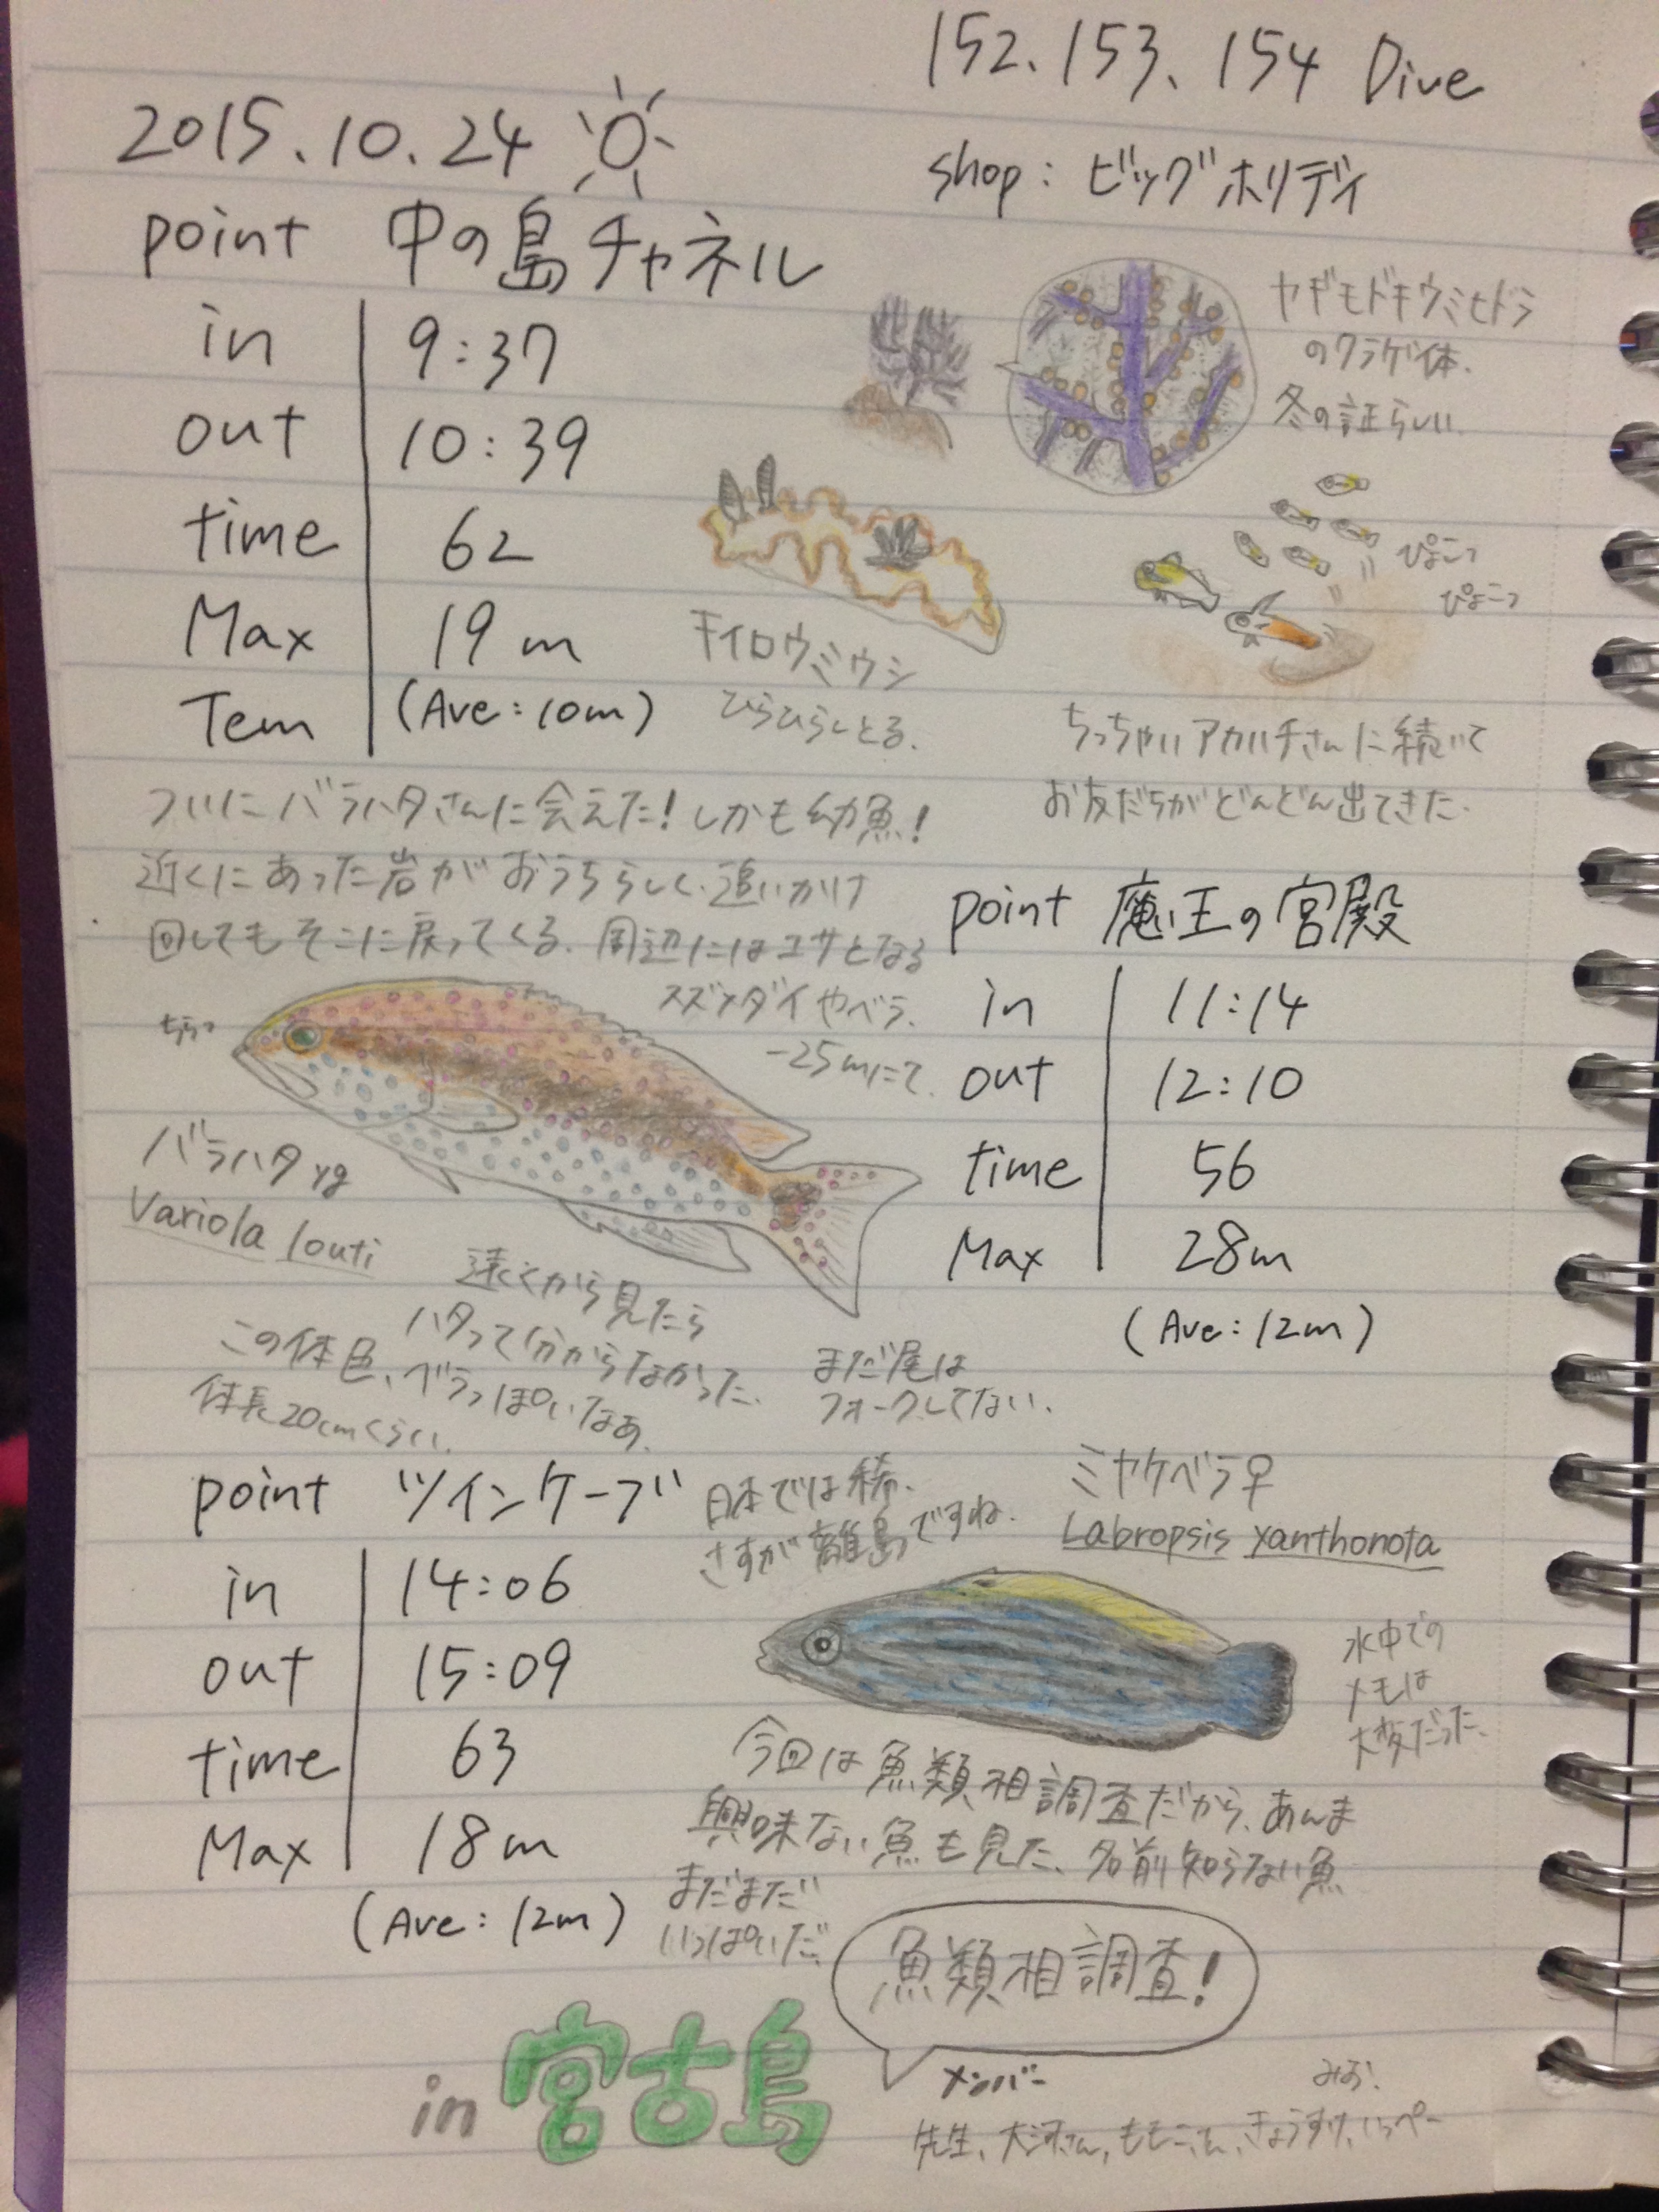 152、153、154 Dive
2015.10.24
shop: ビッグホリデイ
point 中の島チャネル
in 9:37
out 10:39
time 62
Max 19m
Tem (Ave:10m)
ヤギモドキウミヒドラ
のクラゲ体.
冬の証らしい.
ぴょこっ
ぴょこっ
キイロウミウシ
ひらひらしとる.
ちっちゃいアカハチさんに続いて
お友だちがどんどん出てきた.
ついにバラハタさんに会えた!しかも幼魚!
近くにあった岩がおうちらしく、追いかけ
回してもそこに戻ってくる. 周辺にはエサとなる
スズメダイやベラ.
-25mにて.
ちらっ
バラハタyg
Variola louti
遠くから見たら
ハタって分からなかった.
この体色、ベラっぽいなあ.
体長20cmくらい.
まだ尾は
フォークしてない.
point 魔王の宮殿
in 11:14
out 12:10
time 56
Max 28m
(Ave:12m)
point ツインケーブ
in 14:06
out 15:09
time 63
Max 18m
(Ave:12m)
日本では稀.
さすが離島ですね.
ミヤケベラ♀
Labropsis xanthonota
水中での
メモは
大変だった.
今回は魚類相調査だから、あんま
興味ない魚も見た、名前知らない魚
まだまだ
いっぱいだ
魚類相調査!
in 宮古島
メンバー
みお!
先生、大河さん、ももこさん、きょうすけ、いっぺー